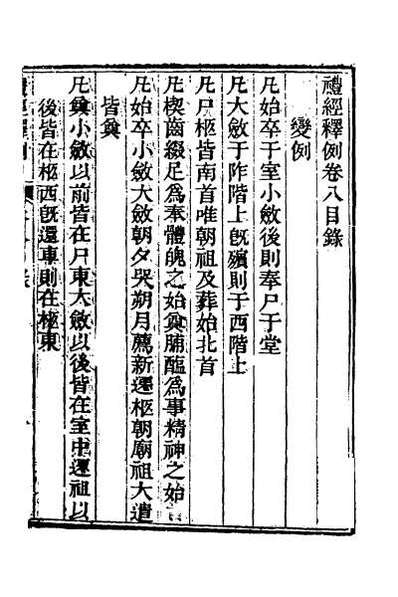 禮經釋例卷八目錄
變例
凡始卒于室小斂後則奉尸于堂
凡大斂于阼階上既殯則于西階上
凡尸柩皆南首唯朝祖及葬始北首
凡楔齒綴足爲奉體魄之始奠脯醢爲事精神之始
凡始卒小斂大斂朝夕哭朔月薦新遷柩朝廟祖大遣
皆奠
凡奠小斂以前皆在尸東大斂以後皆在室中遷祖以
後皆在柩西既還車則在柩東